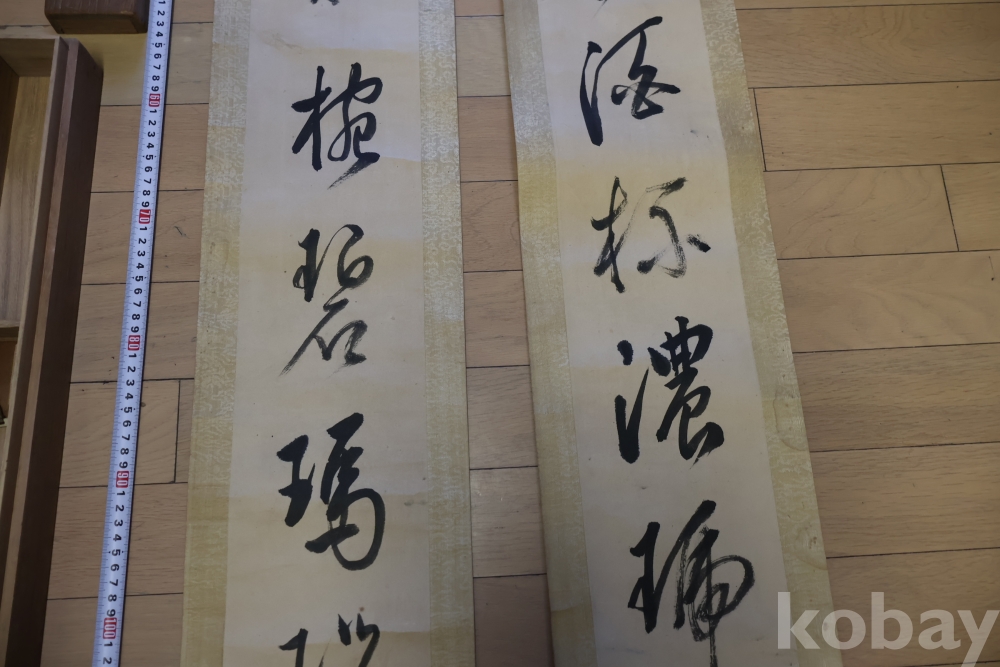 酒杯濃琥
椀碧瑪
1 2 3 4 5 6 7 8 9 60 1 2 3 4 5 6 7 8 9 70 1 2 3 4 5 6 7 8 9 80 1 2 3 4 5 6 7 8 9 90 1 2 3 4 5 6 7 8 9 100 1 2
kobay